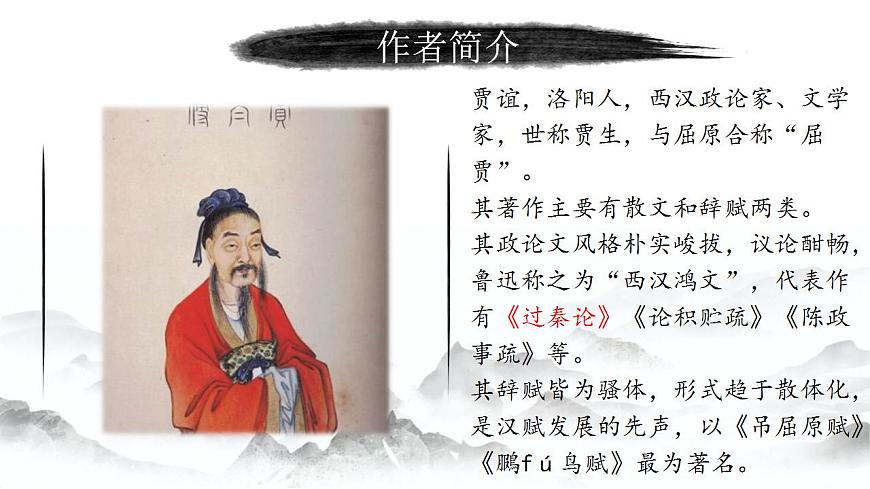 作者简介
贾谊，洛阳人，西汉政论家、文学
家，世称贾生，与屈原合称“屈
贾”。
其著作主要有散文和辞赋两类。
其政论文风格朴实峻拔，议论酣畅，
鲁迅称之为“西汉鸿文”，代表作
有《过秦论》《论积贮疏》《陈政
事疏》等。
其辞赋皆为骚体，形式趋于散体化，
是汉赋发展的先声，以《吊屈原赋》
《鵩fú鸟赋》最为著名。